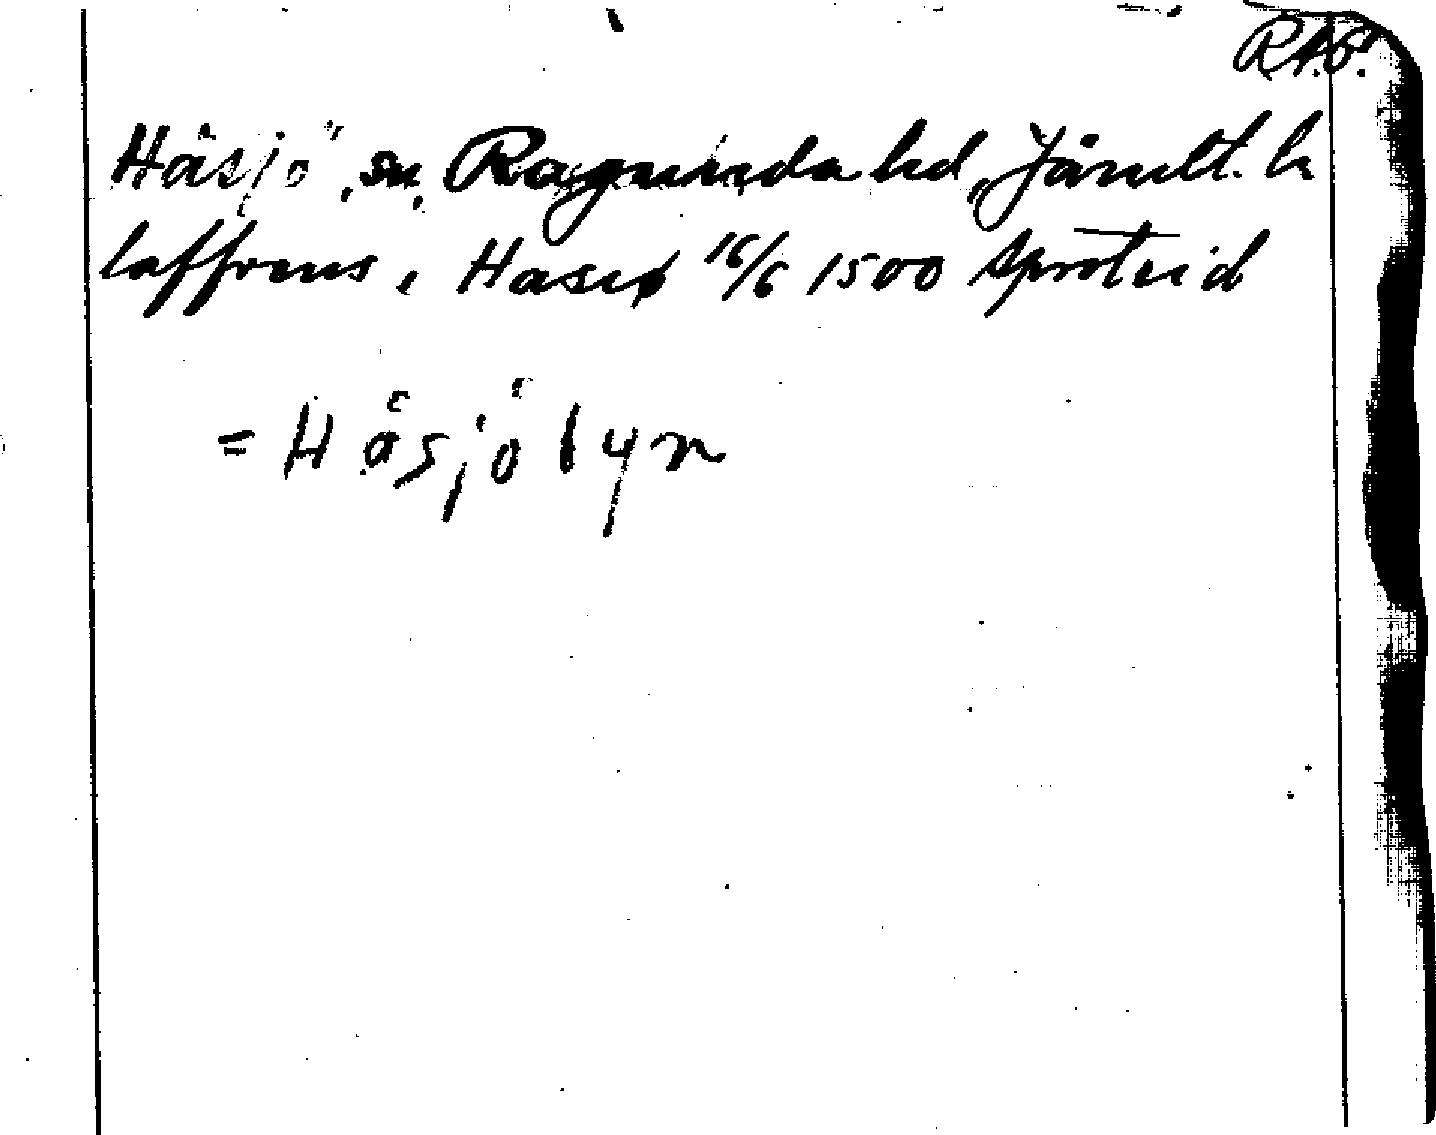 RAG.
Häsjö, sn, Ragunda hd, Jämtl. l.
laffrens i Hasiø 16/6 1500 Sproteid
= Håsjö byn